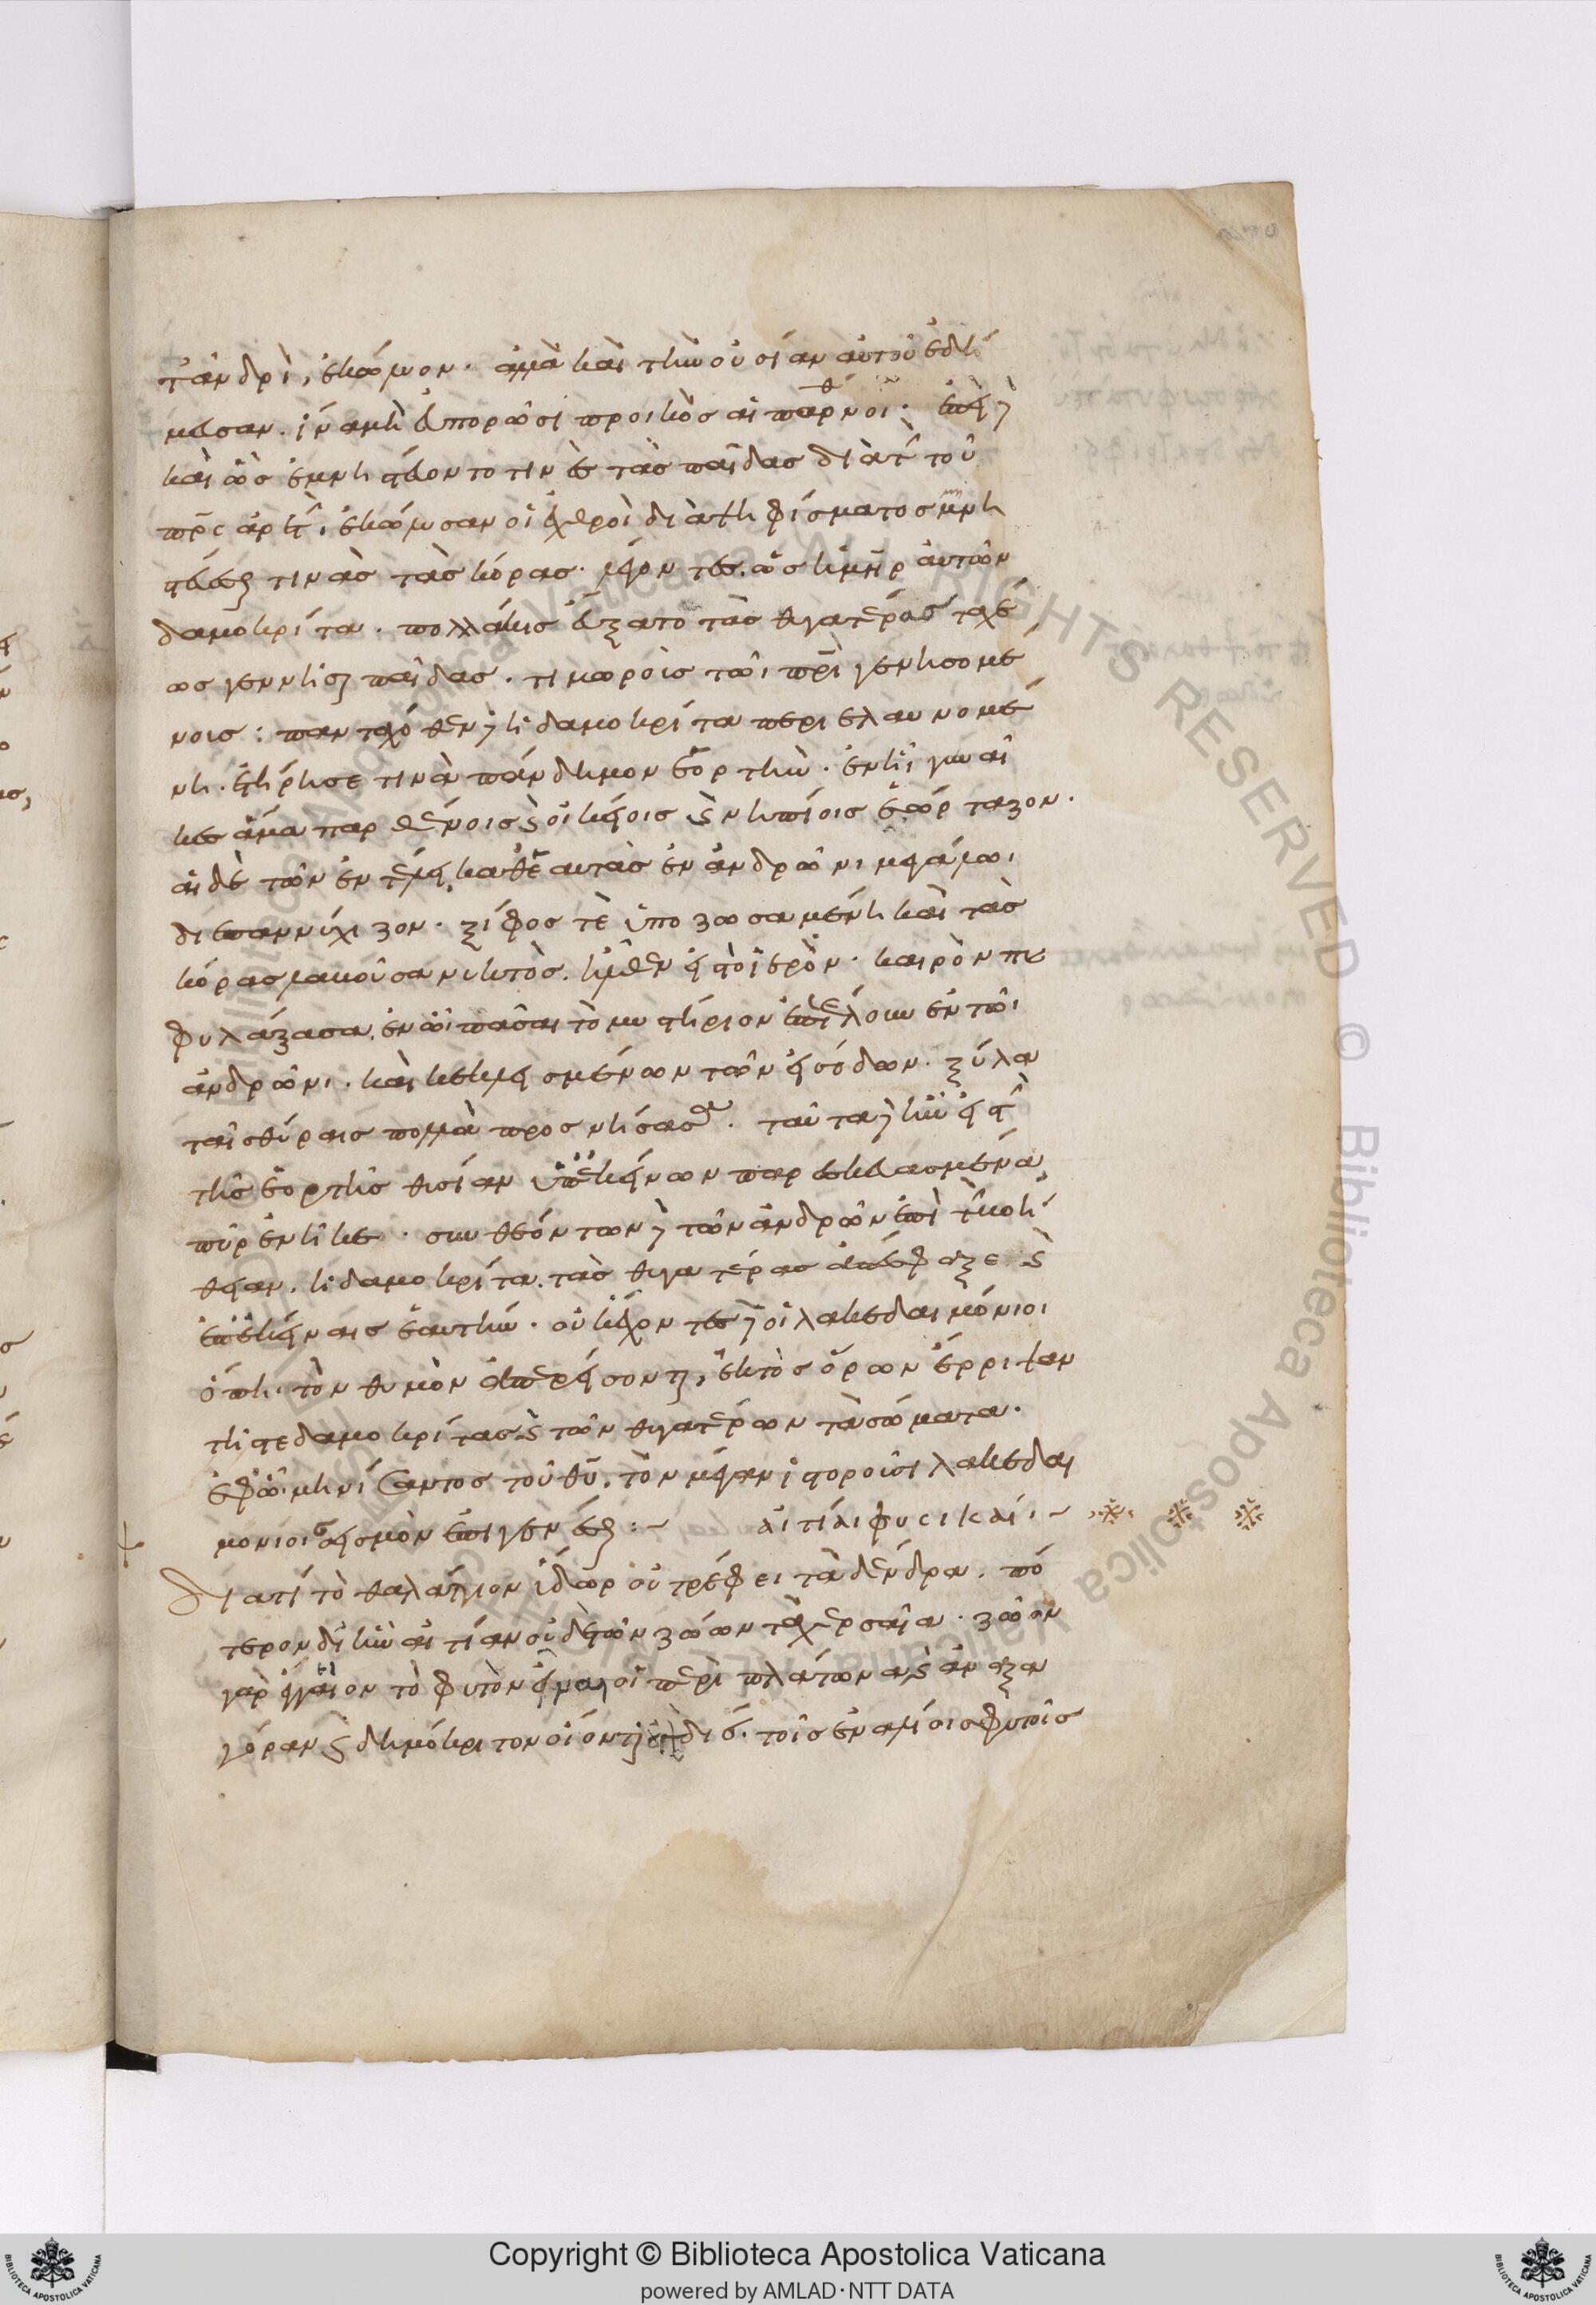 τἀνδρὶ, ἐκώλυον· ἀλλὰ καὶ τὴν οὐσίαν αὐτοῦ ἐδή
μευσαν. ἵνα μὴ εὐπορῶσι προικὸς αἱ παρθνοι· ἐπεὶ δὲ
καὶ ὣς ἐμνηστεύοντό τινες τὰς παῖδας διὰ τὴν τοῦ
πρς ἀρετὴν, ἐκώλυσαν οἱ ἐχθροὶ διὰ ψηφίσματος μνη
στεύεσθαί τινας τὰς κόρας· λέγοντες. ὡς ἡ μηρ αὐτῶν
δαμοκρίτα. πολλάκις εὔξατο τὰς θυγατέρας ταχέ
ως γεννῆσαι παῖδας. τιμωροὺς τῶι πρὶ γενησομέ
νους: πανταχόθεν δὲ ἡ δαμοκρίτα περιελαυνομέ
νη. ἐτήρησέ τινα πάνδημον ἑορτὴν. ἐν ἧι γυναῖ
κες ἅμα παρθένοις καὶ οἰκείοις καὶ νηπίοις ἑώρταζον.
αἱ δὲ τῶν ἐν τέλει, καθ ἑαυτὰς ἐν ἀνδρῶνι μεγάλωι
διεπαννύχιζον. ξίφος τὲ ὑποζωσαμένη καὶ τὰς
κόρας λαβοῦσα νυκτὸς. ἦλθεν εἰς τὸ ἱερὸν. καιρὸν πα
φυλάξασα, ἐν ὧι πᾶσαι τὸ μυστήριον ἐπετέλουν ἐν τῶι
ἀνδρῶνι. καὶ κεκλεισμένων τῶν εἰσόδων. ξύλα
ταῖς θύραις πολλὰ προσνήσασα. ταῦτα δὲ ἦν εἰς τὴν
τῆς ἑορτῆς θυσίαν ὑπ ἐκείνων παρεσκευασμένα,
πῦρ ἐνῆκε. συνθεόντων δὲ τῶν ἀνδρῶν ἐπὶ τὴν βοή
θειαν. ἡ δαμοκρίτα. τὰς θυγατέρας ἀπέσφαξε καὶ
ἐπ ἐκείναις ἑαυτὴν. οὐκ ἔχοντες δὲ οἱ λακεδαιμόνιοι
ὅπηι τὸν θυμὸν ἀπερείσονται, ἐκτὸς ὅρων ἔρριψαν
τῆς τε δαμοκρίτας καὶ τῶν θυγατέρων τὰ σώματα.
ἐφ ὧι μηνίσαντος τοῦ θυ. τὸν μέγαν ἱστοροῦσι λακεδαι
μονίοις σεισμὸν ἐπιγενέσθαι :~ αἰτίαι φυσικαί :~
Διατί τὸ θαλάττιον ὕδωρ οὐ τρέφει τὰ δένδρα. πό
τερον δι ἣν αἰτίαν οὐδὲ τῶν ζώων τὰ χερσαῖα. ζῶον
γὰρ ἔγγαιον τὸ φυτὸν εἶναι οἱ περὶ πλάτωνα καὶ ἀναξα
γόραν καὶ δημόκριτον οἴονται διό. τοῖς ἐναλίοις φυτοῖς